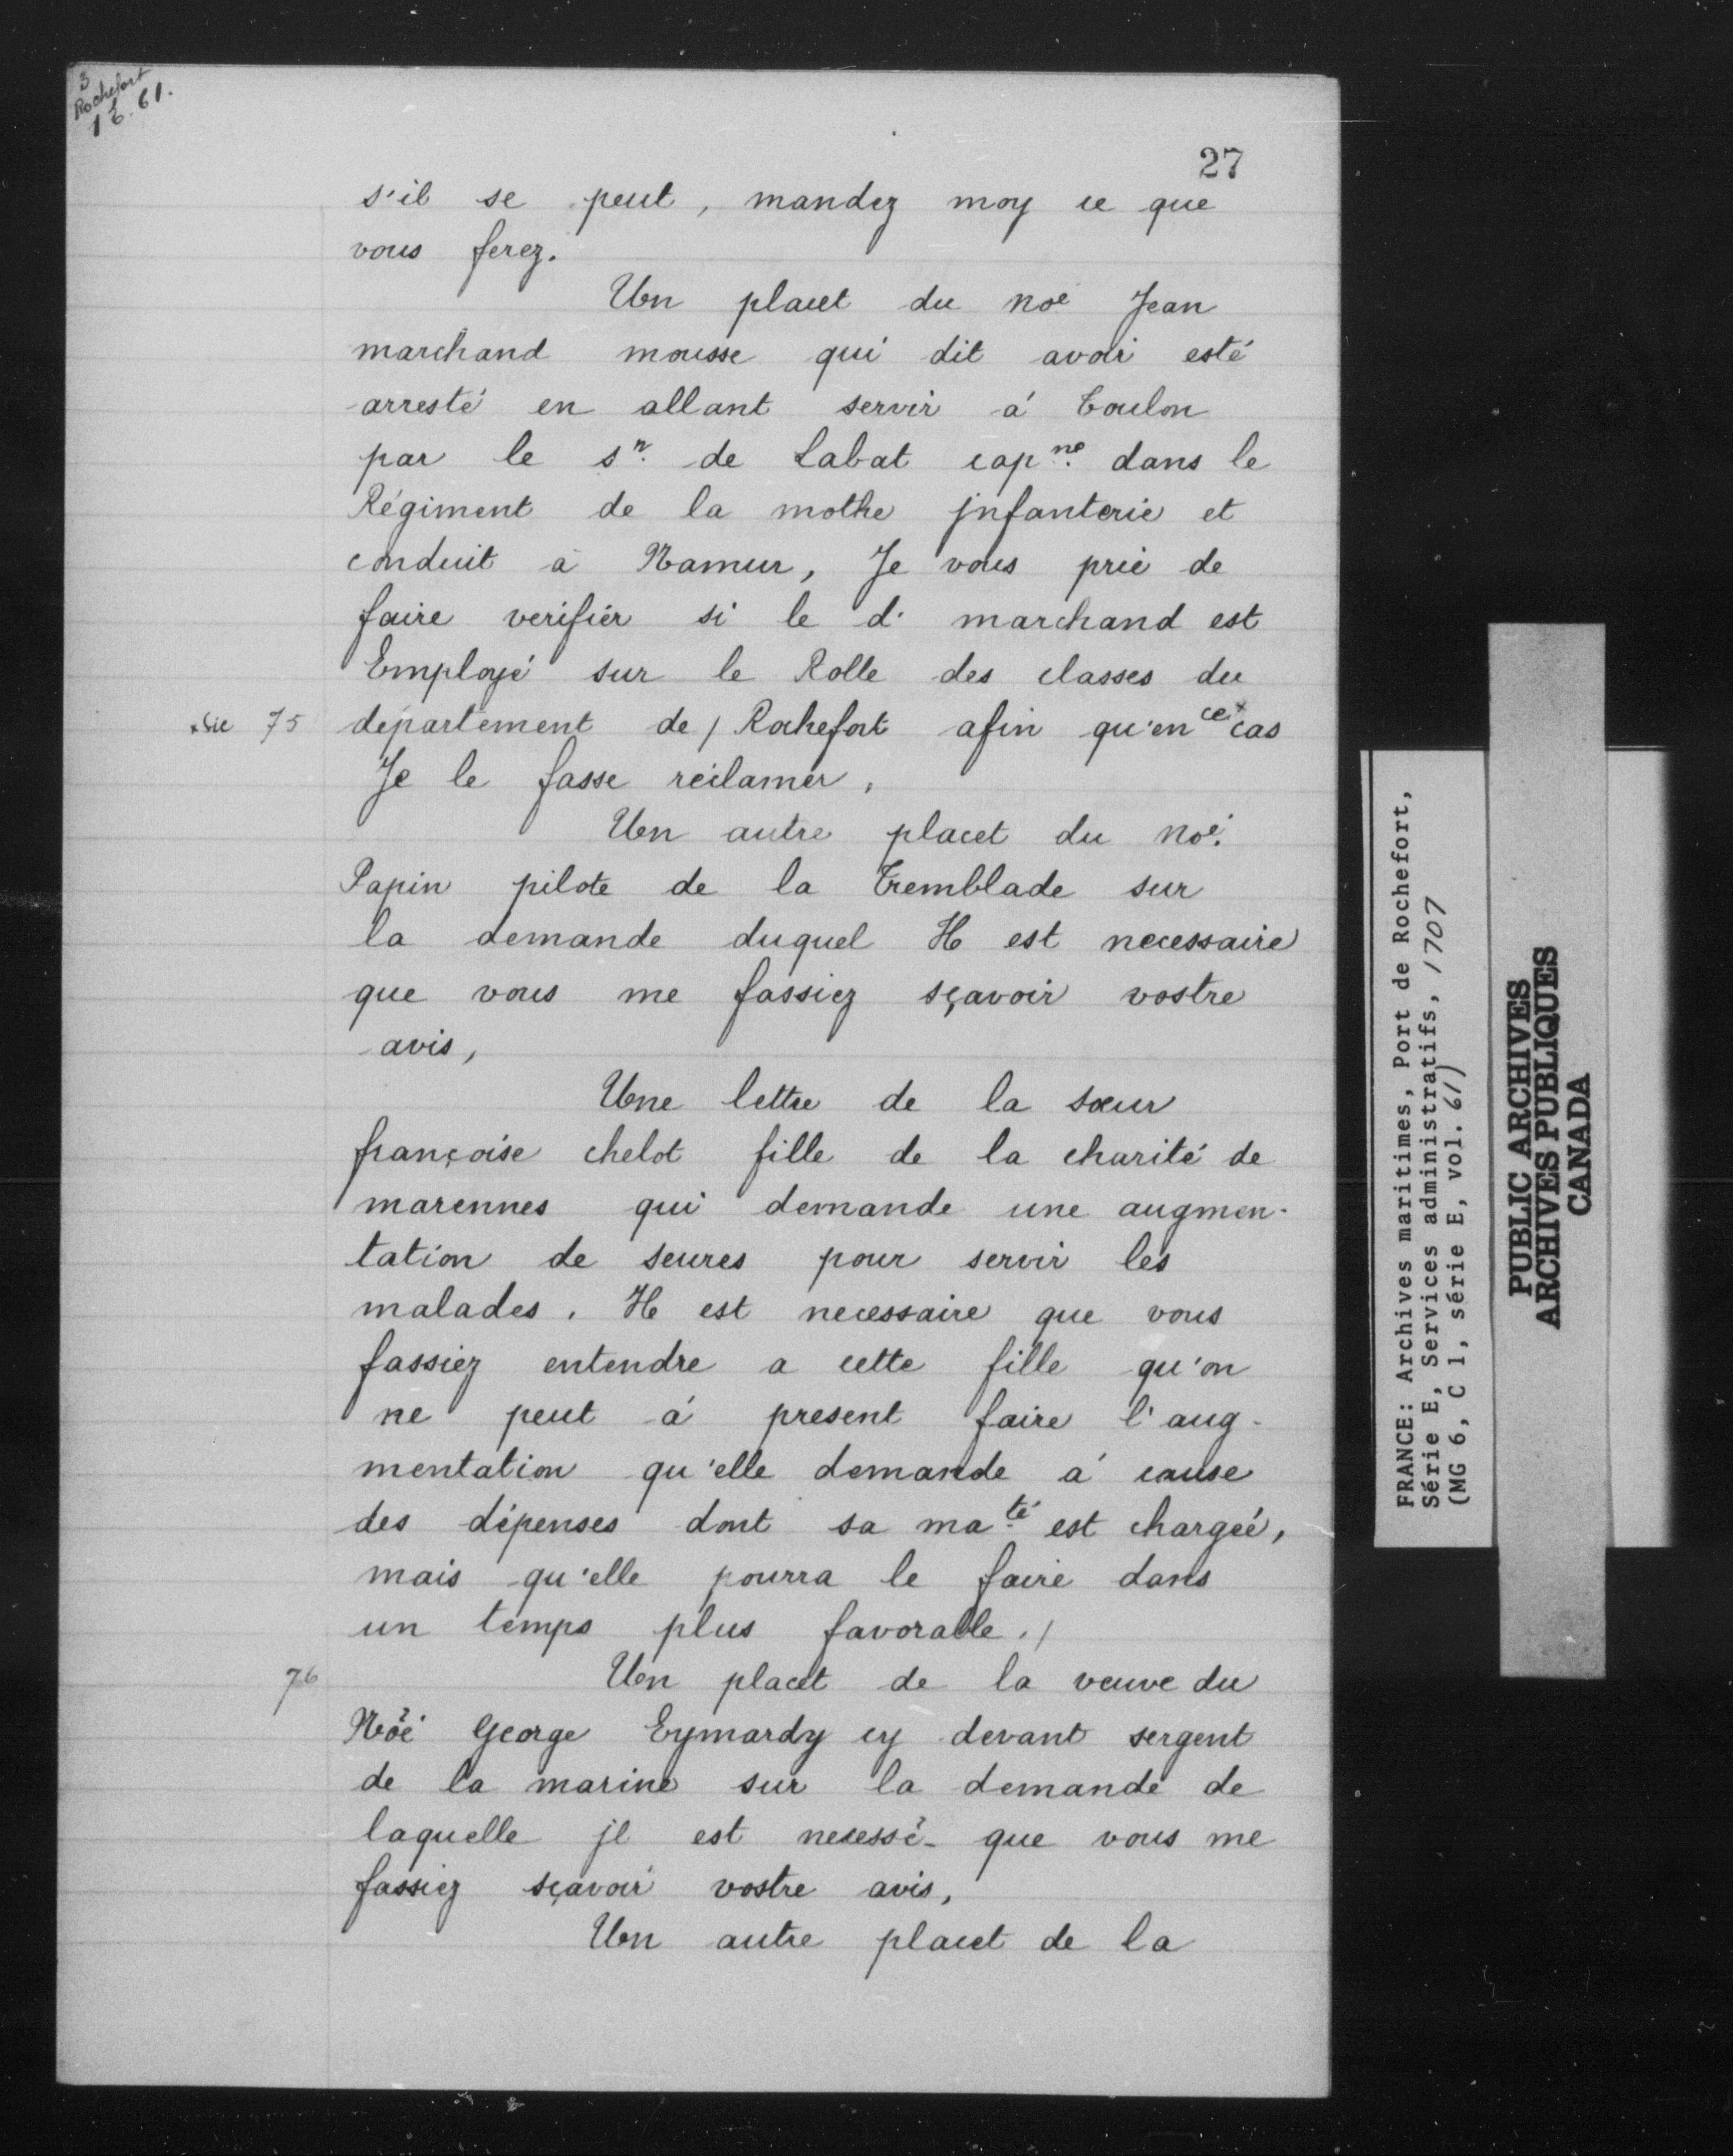 3
Rochefort
1 E. 61.
27
s'il se peut, mandez moy ce que
vous ferez.
Un placet du noé Jean
marchand mousse qui dit avoir esté
arresté en allant servir á Toulon
par le sr. de Labat capne. dans le
Régiment de la mothe jnfanterie et
conduit à Namur, Je vous prie de
faire verifier si le d. marchand est
Employé sur le Rolle des classes du
x sic 75 departement de / Rochefort afin qu'en ce x cas
Je le fasse reclamer,
Un autre placet du noé.
Papin pilote de la Tremblade sur
la demande duquel Il est necessaire
que vous me fassiez sçavoir vostre
avis,
Une lettre de la sœur
françoise chelot fille de la charité de
marennes qui demande une augmen-
tation de seures pour servir les
malades. Il est necessaire que vous
fassiez entendre a cette fille qu'on
ne peut á present faire l'aug-
mentation qu'elle demande á cause
des dépenses dont sa maté est chargeé,
mais qu'elle pourra le faire dans
un temps plus favorable. /
76 Un placet de la veuve du
Nöé George Eymardy cy devant sergent
de la marine sur la demande de
laquelle jl est necessé- que vous me
fassiez sçavoir vostre avis,
Un autre placet de la
FRANCE: Archives maritimes, Port de Rochefort,
Série E, Services administratifs, 1707
(MG 6, C 1, série E, vol. 61)
PUBLIC ARCHIVES
ARCHIVES PUBLIQUES
CANADA